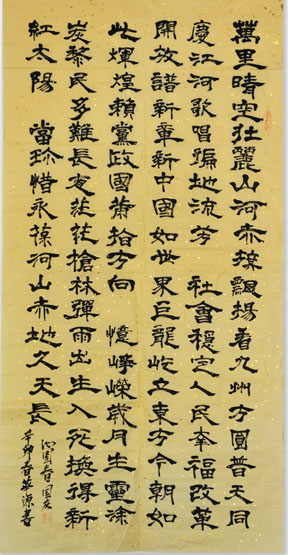 萬里晴空壯麗山河赤葆飄揚看九州方圓普天同
慶江河歌唱遍地流芳 社會穩定人民幸福改革
開放譜新章新中國如世果巨龍屹立東方今朝如
此輝煌賴黨政國策指方向 憶崢嶸歲月生靈涂
炭黎民多難長夜茫茫槍林彈雨出生入死換得新
紅太陽 當珍惜永葆河山赤地久天長
沁園春國慶
辛卯春華源書